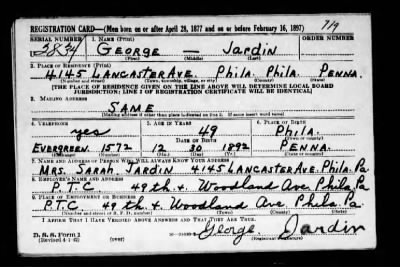 REGISTRATION CARD—(Men born on or after April 28, 1877 and on or before February 16, 1897)
SERIAL NUMBER 1. NAME (Print) ORDER NUMBER
George — Jardin
(First) (Middle) (Last)
2. PLACE OF RESIDENCE (Print)
4145 Lancaster Ave. Phila. Phila. Penna.
(Number and street) (Town, township, village, or city) (County) (State)
[THE PLACE OF RESIDENCE GIVEN ON THE LINE ABOVE WILL DETERMINE LOCAL BOARD
JURISDICTION; LINE 2 OF REGISTRATION CERTIFICATE WILL BE IDENTICAL]
3. MAILING ADDRESS
Same
[Mailing address if other than place indicated on line 2. If same insert word same]
4. TELEPHONE 5. AGE IN YEARS 6. PLACE OF BIRTH
yes 49 Phila.
DATE OF BIRTH (Town or county)
Evergreen 1572 12 30 1892 Penna.
(Exchange) (Number) (Mo.) (Day) (Yr.) (State or country)
7. NAME AND ADDRESS OF PERSON WHO WILL ALWAYS KNOW YOUR ADDRESS
Mrs. Sarah Jardin 4145 Lancaster Ave. Phila. Pa
8. EMPLOYER'S NAME AND ADDRESS
P.T.C 49th & Woodland Ave Phila Pa
9. PLACE OF EMPLOYMENT OR BUSINESS
P.T.C 49th & Woodland Ave Phila Pa
(Number and street or R. F. D. number) (Town) (County) (State)
I AFFIRM THAT I HAVE VERIFIED ABOVE ANSWERS AND THAT THEY ARE TRUE.
D. S. S. Form 1
(Revised 4-1-42) (over)
George Jardin
(Registrant's signature)